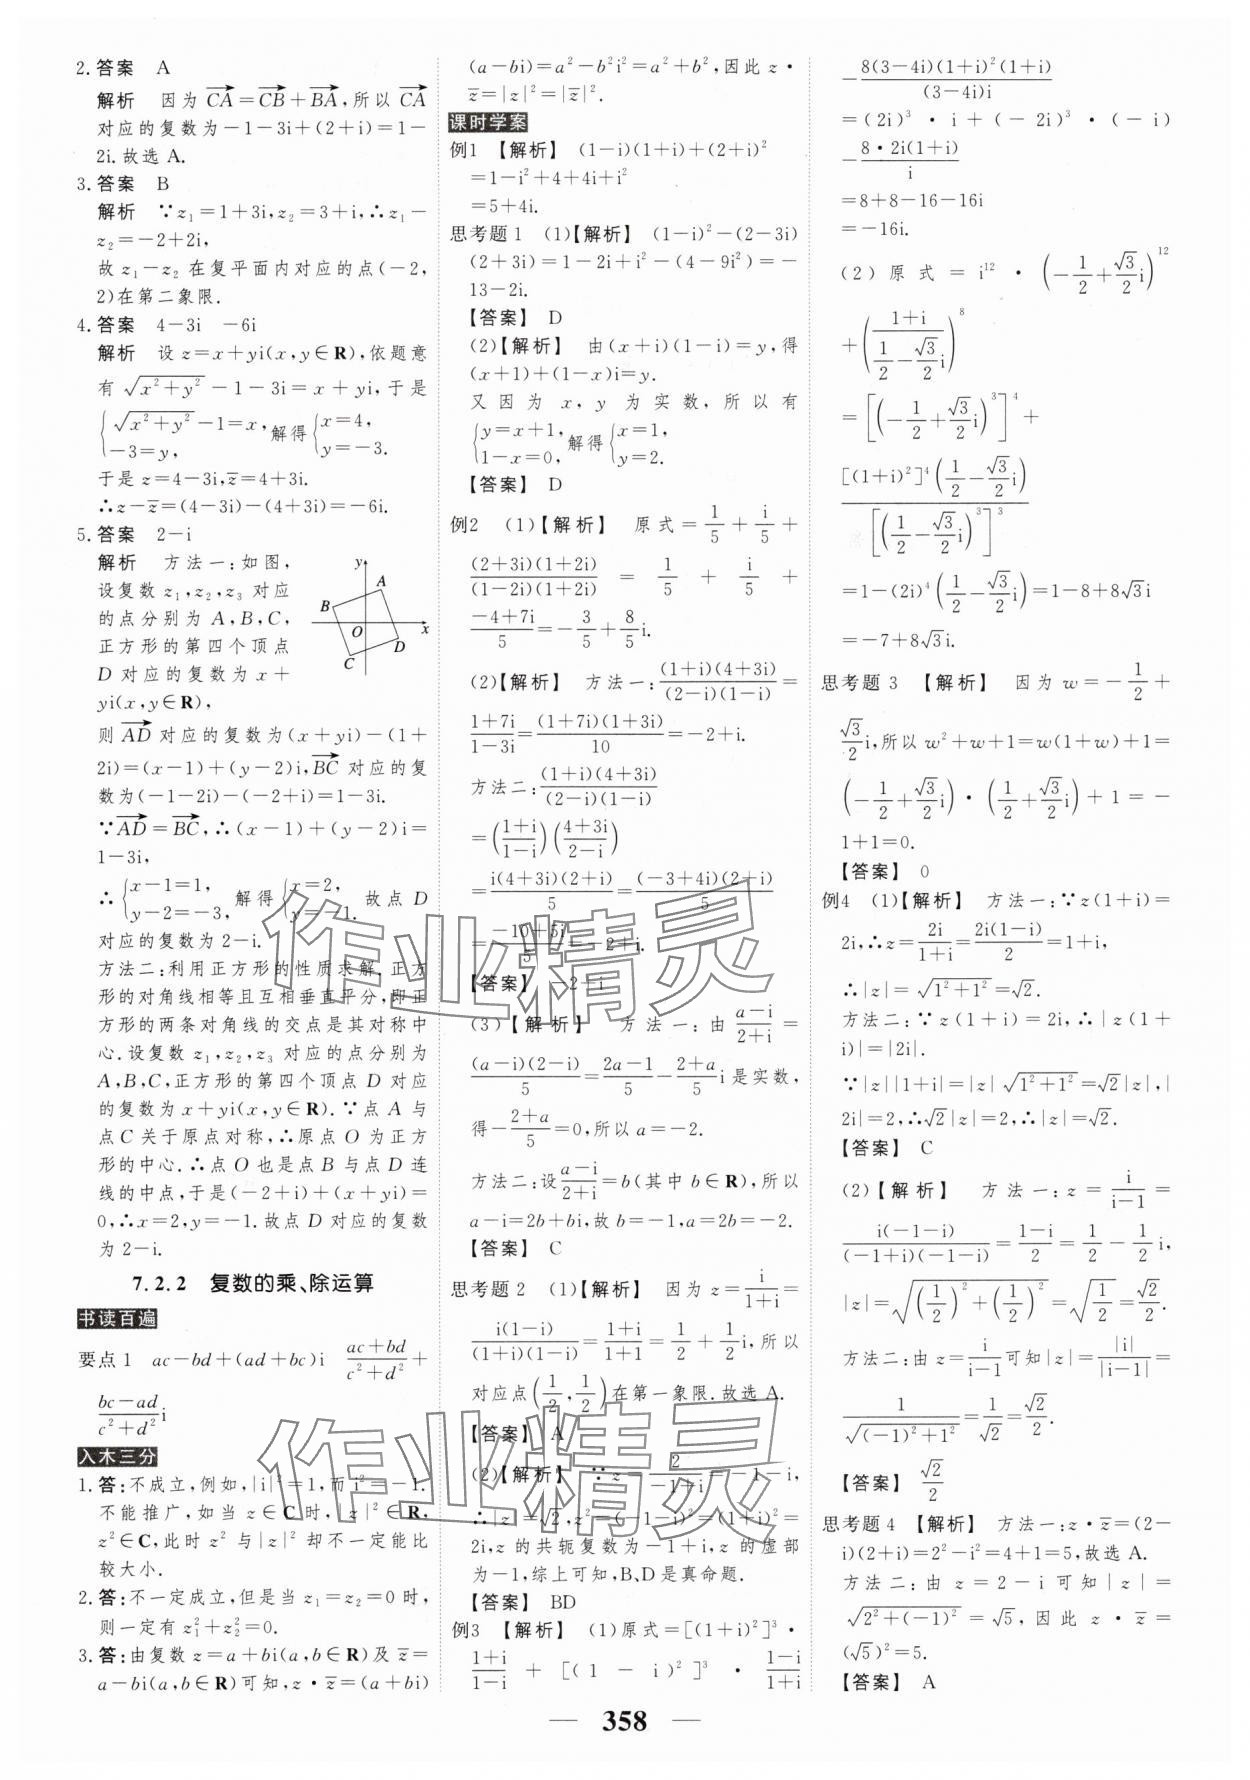 2. 答案 A
解析 因为 CA=CB+BA,所以 CA
对应的复数为-1-3i+(2+i)=1-
2i.故选 A.
3. 答案 B
解析 ∵z₁=1+3i,z₂=3+i,∴z₁-
z₂=-2+2i,
故 z₁-z₂ 在复平面内对应的点(-2,
2)在第二象限.
4. 答案 4-3i -6i
解析 设 z=x+yi(x,y∈R),依题意
有 √(x²+y²)-1-3i=x+yi,于是
{√(x²+y²)-1=x, -3=y, 解得{x=4, y=-3.
于是 z=4-3i,z̄=4+3i.
∴z-z̄=(4-3i)-(4+3i)=-6i.
5. 答案 2-i
解析 方法一:如图,
设复数 z₁,z₂,z₃ 对应
的点分别为 A,B,C,
正方形的第四个顶点
D 对应的复数为 x+
yi(x,y∈R),
y A B O x C D
则 AD 对应的复数为(x+yi)-(1+
2i)=(x-1)+(y-2)i,BC 对应的复
数为(-1-2i)-(-2+i)=1-3i.
∵AD=BC,∴(x-1)+(y-2)i=
1-3i,
∴{x-1=1, y-2=-3, 解得{x=2, y=-1. 故点 D
对应的复数为 2-i.
方法二:利用正方形的性质求解.正方
形的对角线相等且互相垂直平分,即正
方形的两条对角线的交点是其对称中
心.设复数 z₁,z₂,z₃ 对应的点分别为
A,B,C,正方形的第四个顶点 D 对应
的复数为 x+yi(x,y∈R).∵点 A 与
点C 关于原点对称,∴原点 O 为正方
形的中心.∴点 O 也是点 B 与点 D 连
线的中点,于是(-2+i)+(x+yi)=
0,∴x=2,y=-1.故点 D 对应的复数
为 2-i.
7.2.2 复数的乘、除运算
书读百遍
要点 1 ac-bd+(ad+bc)i (ac+bd)/(c²+d²)+
(bc-ad)/(c²+d²)i
入木三分
1. 答:不成立,例如,|i|²=1,而 i²=-1.
不能推广,如当 z∈C 时,|z|²∈R,
z²∈C,此时 z² 与|z|² 却不一定能比
较大小.
2. 答:不一定成立,但是当 z₁=z₂=0 时,
则一定有 z₁²+z₂²=0.
3. 答:由复数 z=a+bi(a,b∈R)及 z̄=
a-bi(a,b∈R)可知,z·z̄=(a+bi)
(a-bi)=a²-b²i²=a²+b²,因此 z·
z̄=|z|²=|z̄|².
课时学案
例1 【解析】 (1-i)(1+i)+(2+i)²
=1-i²+4+4i+i²
=5+4i.
思考题 1 (1)【解析】 (1-i)²-(2-3i)
(2+3i)=1-2i+i²-(4-9i²)=-
13-2i.
【答案】 D
(2)【解析】 由(x+i)(1-i)=y,得
(x+1)+(1-x)i=y.
又因为 x,y 为实数,所以有
{y=x+1, 1-x=0, 解得{x=1, y=2.
【答案】 D
例2 (1)【解析】 原式=1/5+i/5+
(2+3i)(1+2i)/(1-2i)(1+2i) = 1/5 + i/5 +
(-4+7i)/5=-3/5+8/5i.
(2)【解析】 方法一:(1+i)(4+3i)/(2-i)(1-i)=
(1+7i)/(1-3i)=(1+7i)(1+3i)/10=-2+i.
方法二:(1+i)(4+3i)/(2-i)(1-i)
=((1+i)/(1-i))((4+3i)/(2-i))
=i(4+3i)(2+i)/5=(-3+4i)(2+i)/5
=(-10+5i)/5=-2+i.
【答案】 -2+i
(3)【解析】 方法一:由(a-i)/(2+i)=
(a-i)(2-i)/5=(2a-1)/5-(2+a)/5i 是实数,
得-(2+a)/5=0,所以 a=-2.
方法二:设(a-i)/(2+i)=b(其中 b∈R),所以
a-i=2b+bi,故 b=-1,a=2b=-2.
【答案】 C
思考题 2 (1)【解析】 因为 z=i/(1+i)=
i(1-i)/(1+i)(1-i)=(1+i)/(1+1)=1/2+1/2i,所以
对应点(1/2,1/2)在第一象限.故选 A.
【答案】 A
(2)【解析】 ∵z=2/(-1+i)=-1-i,
∴|z|=√2,z²=(-1-i)²=(1+i)²=
2i,z 的共轭复数为-1+i,z 的虚部
为-1,综上可知,B、D是真命题.
【答案】 BD
例3 【解析】 (1)原式=[(1+i)²]³·
(1+i)/(1-i) + [(1-i)²]³ · (1-i)/(1+i)
-8(3-4i)(1+i)²(1+i)/(3-4i)i
=(2i)³·i+(-2i)³·(-i)
-8·2i(1+i)/i
=8+8-16-16i
=-16i.
(2) 原式 = i¹² · (-1/2+√3/2i)¹²
+((1+i)/(1/2-√3/2i))⁸
=[(-1/2+√3/2i)³]⁴+
[(1+i)²]⁴(1/2-√3/2i)/[(1/2-√3/2i)³]³
=1-(2i)⁴(1/2-√3/2i)=1-8+8√3i
=-7+8√3i.
思考题 3 【解析】 因为 w=-1/2+
√3/2i,所以 w²+w+1=w(1+w)+1=
(-1/2+√3/2i)·(1/2+√3/2i)+1=-
1+1=0.
【答案】 0
例4 (1)【解析】 方法一:∵z(1+i)=
2i,∴z=2i/(1+i)=2i(1-i)/2=1+i,
∴|z|=√(1²+1²)=√2.
方法二:∵z(1+i)=2i,∴|z(1+
i)|=|2i|.
∵|z||1+i|=|z|√(1²+1²)=√2|z|,|
2i|=2,∴√2|z|=2,∴|z|=√2.
【答案】 C
(2)【解析】 方法一:z=i/(i-1)=
i(-1-i)/(-1+i)(-1-i)=(1-i)/2=1/2-1/2i,
|z|=√((1/2)²+(1/2)²)=√(1/2)=√2/2.
方法二:由 z=i/(i-1)可知|z|=|i|/|i-1|=
1/√((-1)²+1²)=1/√2=√2/2.
【答案】 √2/2
思考题 4 【解析】 方法一:z·z̄=(2-
i)(2+i)=2²-i²=4+1=5,故选 A.
方法二:由 z=2-i 可知|z|=
√(2²+(-1)²)=√5,因此 z·z̄=
(√5)²=5.
【答案】 A
— 358 —
作业精灵
作业精灵